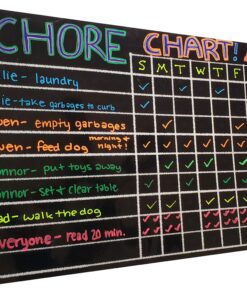 CHORE CHART!
S M T W T F
lie - laundry
ie - take garbages to curb
en - empty garbages
wen - feed dog morning & night!
nnor - put toys away
onnor - set & clear table
ad - walk the dog
veryone - read 20 min.